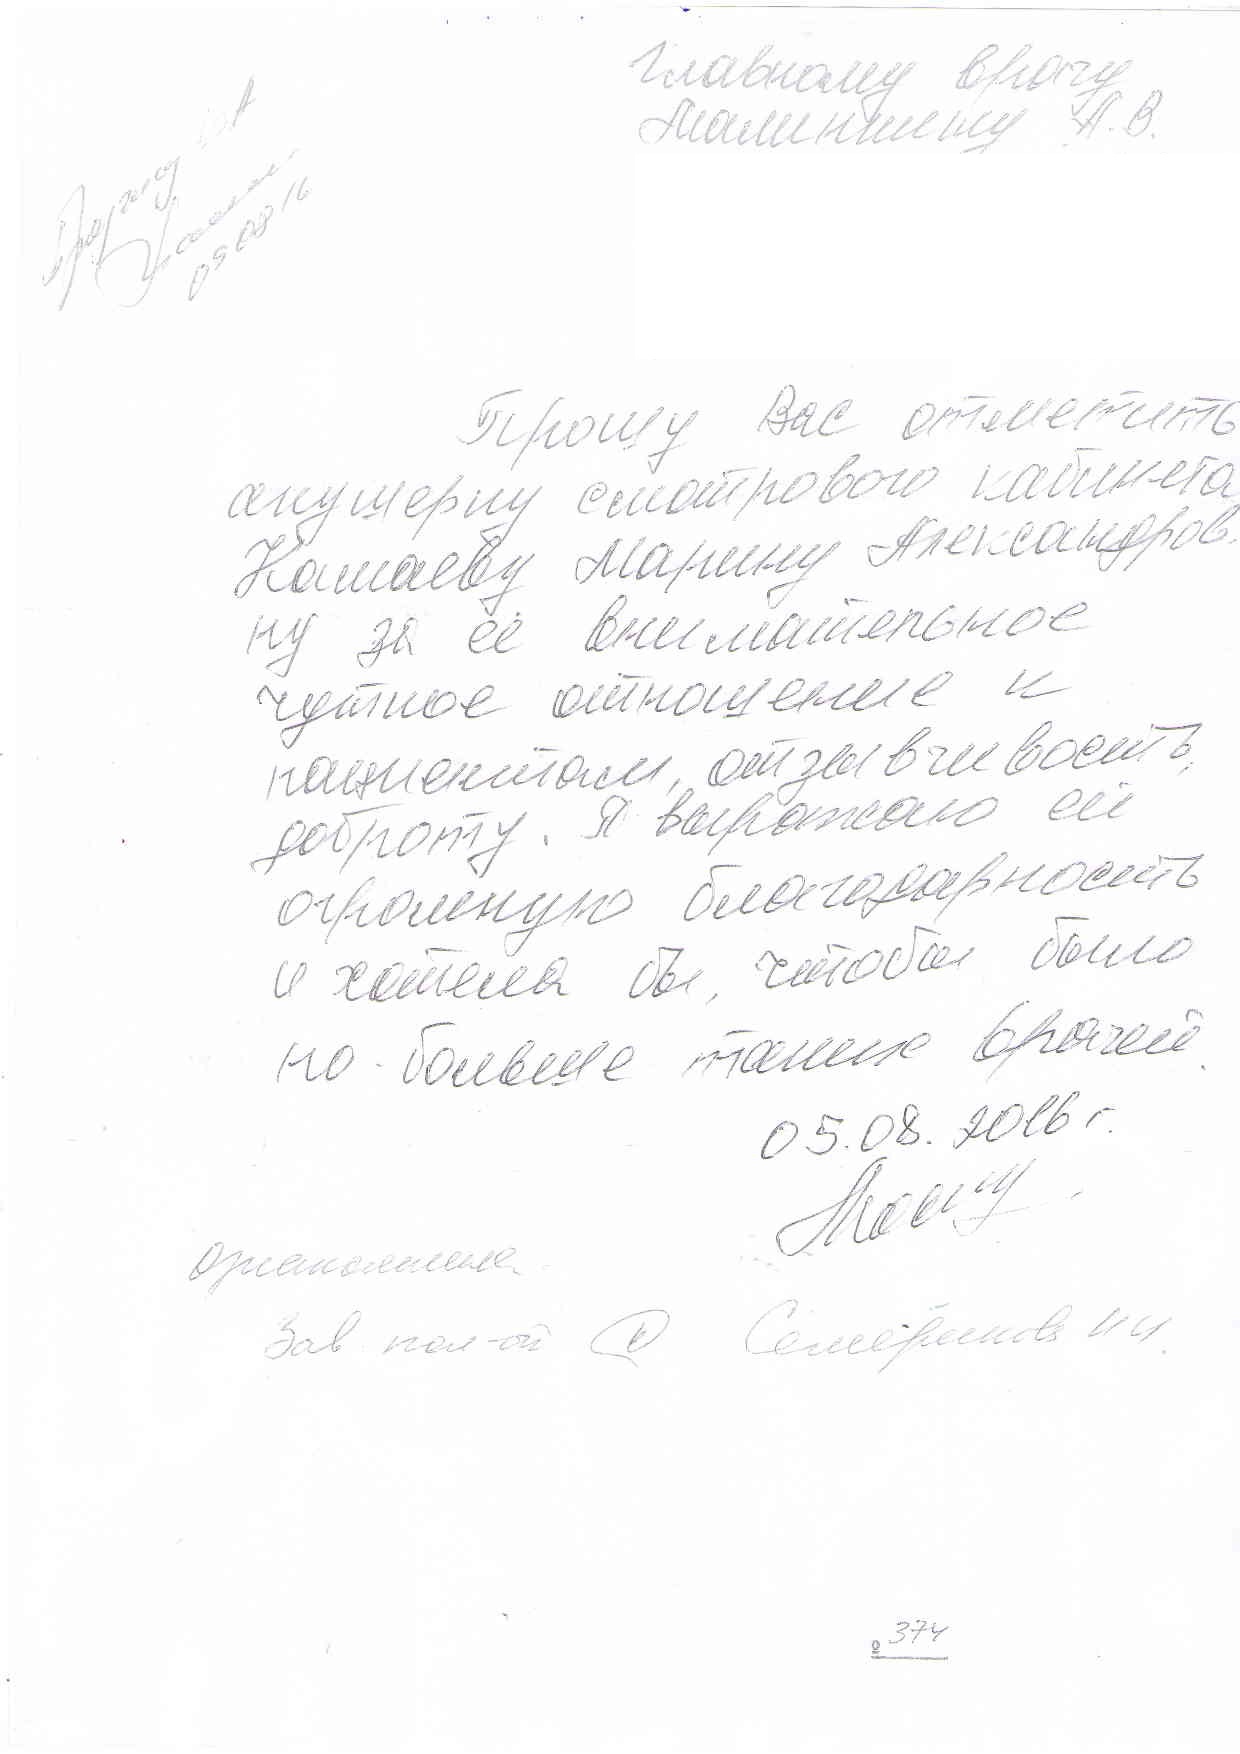 Главному врачу
А.В.
09 08 16
Прошу Вас отметить
акушерку смотрового кабинета
Камаеву Марину Александров.
ну за её внимательное
чуткое отношение к
пациентам, отзывчивость,
доброту. Я выражаю ей
огромную благодарность
и хотела бы, чтобы было
по больше таких врачей.
05.08.2016 г.
Ознакомлена
Зав пол-ой
374